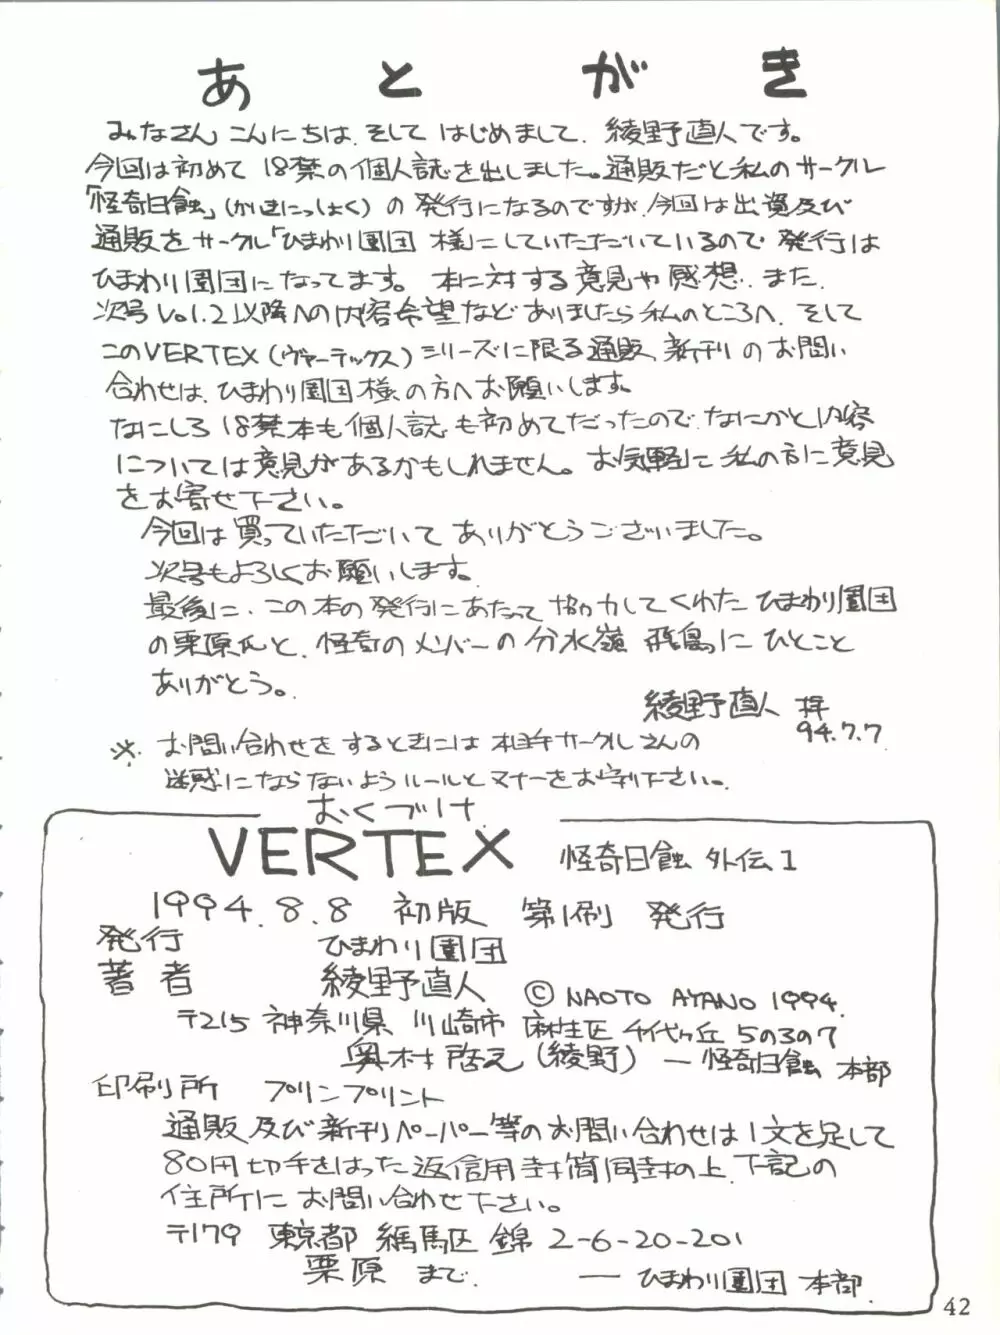 あとがき
みなさんこんにちは、そして はじめまして、綾野直人です。
今回は初めて 18禁の個人誌を出しました。通販だと私のサークル
「怪奇日蝕」(かいきにっしょく)の 発行になるのですが、今回は出資及び
通販をサークル「ひまわり園団 様」にしていただいているので 発行は
ひまわり園団になってます。 本に対する意見や感想、また
次号Vol.2以降への内容希望などありましたら私のところへ、そして
このVERTEX(ヴァーテックス)シリーズに限る通販、新刊のお問い
合わせは、ひまわり園団様の方へお願いします。
なにしろ 18禁本も個人誌も初めてだったので なにかと内容
については意見があるかもしれません。お気軽に私の方に意見
をお寄せ下さい。
今回は買っていただいて ありがとうございました。
次号もよろしくお願いします。
最後に、この本の発行にあたって協力してくれた ひまわり園団
の栗原氏と、怪奇のメンバーの分水嶺 飛鳥に ひとこと
ありがとう。
綾野直人 拝
94.7.7
※ お問い合わせをするときには 相手サークルさんの
迷惑にならないようルールとマナーをお守り下さい。
おくづけ
VERTEX 怪奇日蝕 外伝1
1994.8.8 初版 第1刷 発行
発行 ひまわり園団
著者 綾野直人 © NAOTO AYANO 1994.
〒215 神奈川県 川崎市 麻生区 千代ヶ丘 5の3の7
奥村 啓之(綾野) ― 怪奇日蝕 本部
印刷所 プリンプリント
通販及び新刊ペーパー等のお問い合わせは1文を足して
80円切手をはった返信用封筒同封の上、下記の
住所に お問い合わせ下さい。
〒179 東京都 練馬区 錦 2-6-20-201
栗原 まで. ― ひまわり園団 本部.
42